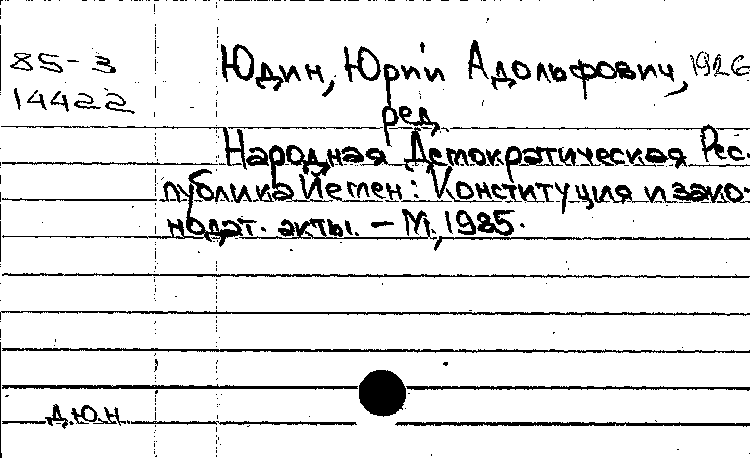 85-3
14422
Юдин, Юрий Адольфович, 1926
ред.
Народная Демократическая Рес-
публика Йемен: Конституция и зако-
нодат. акты. - М., 1985.
Д.Ю.Н